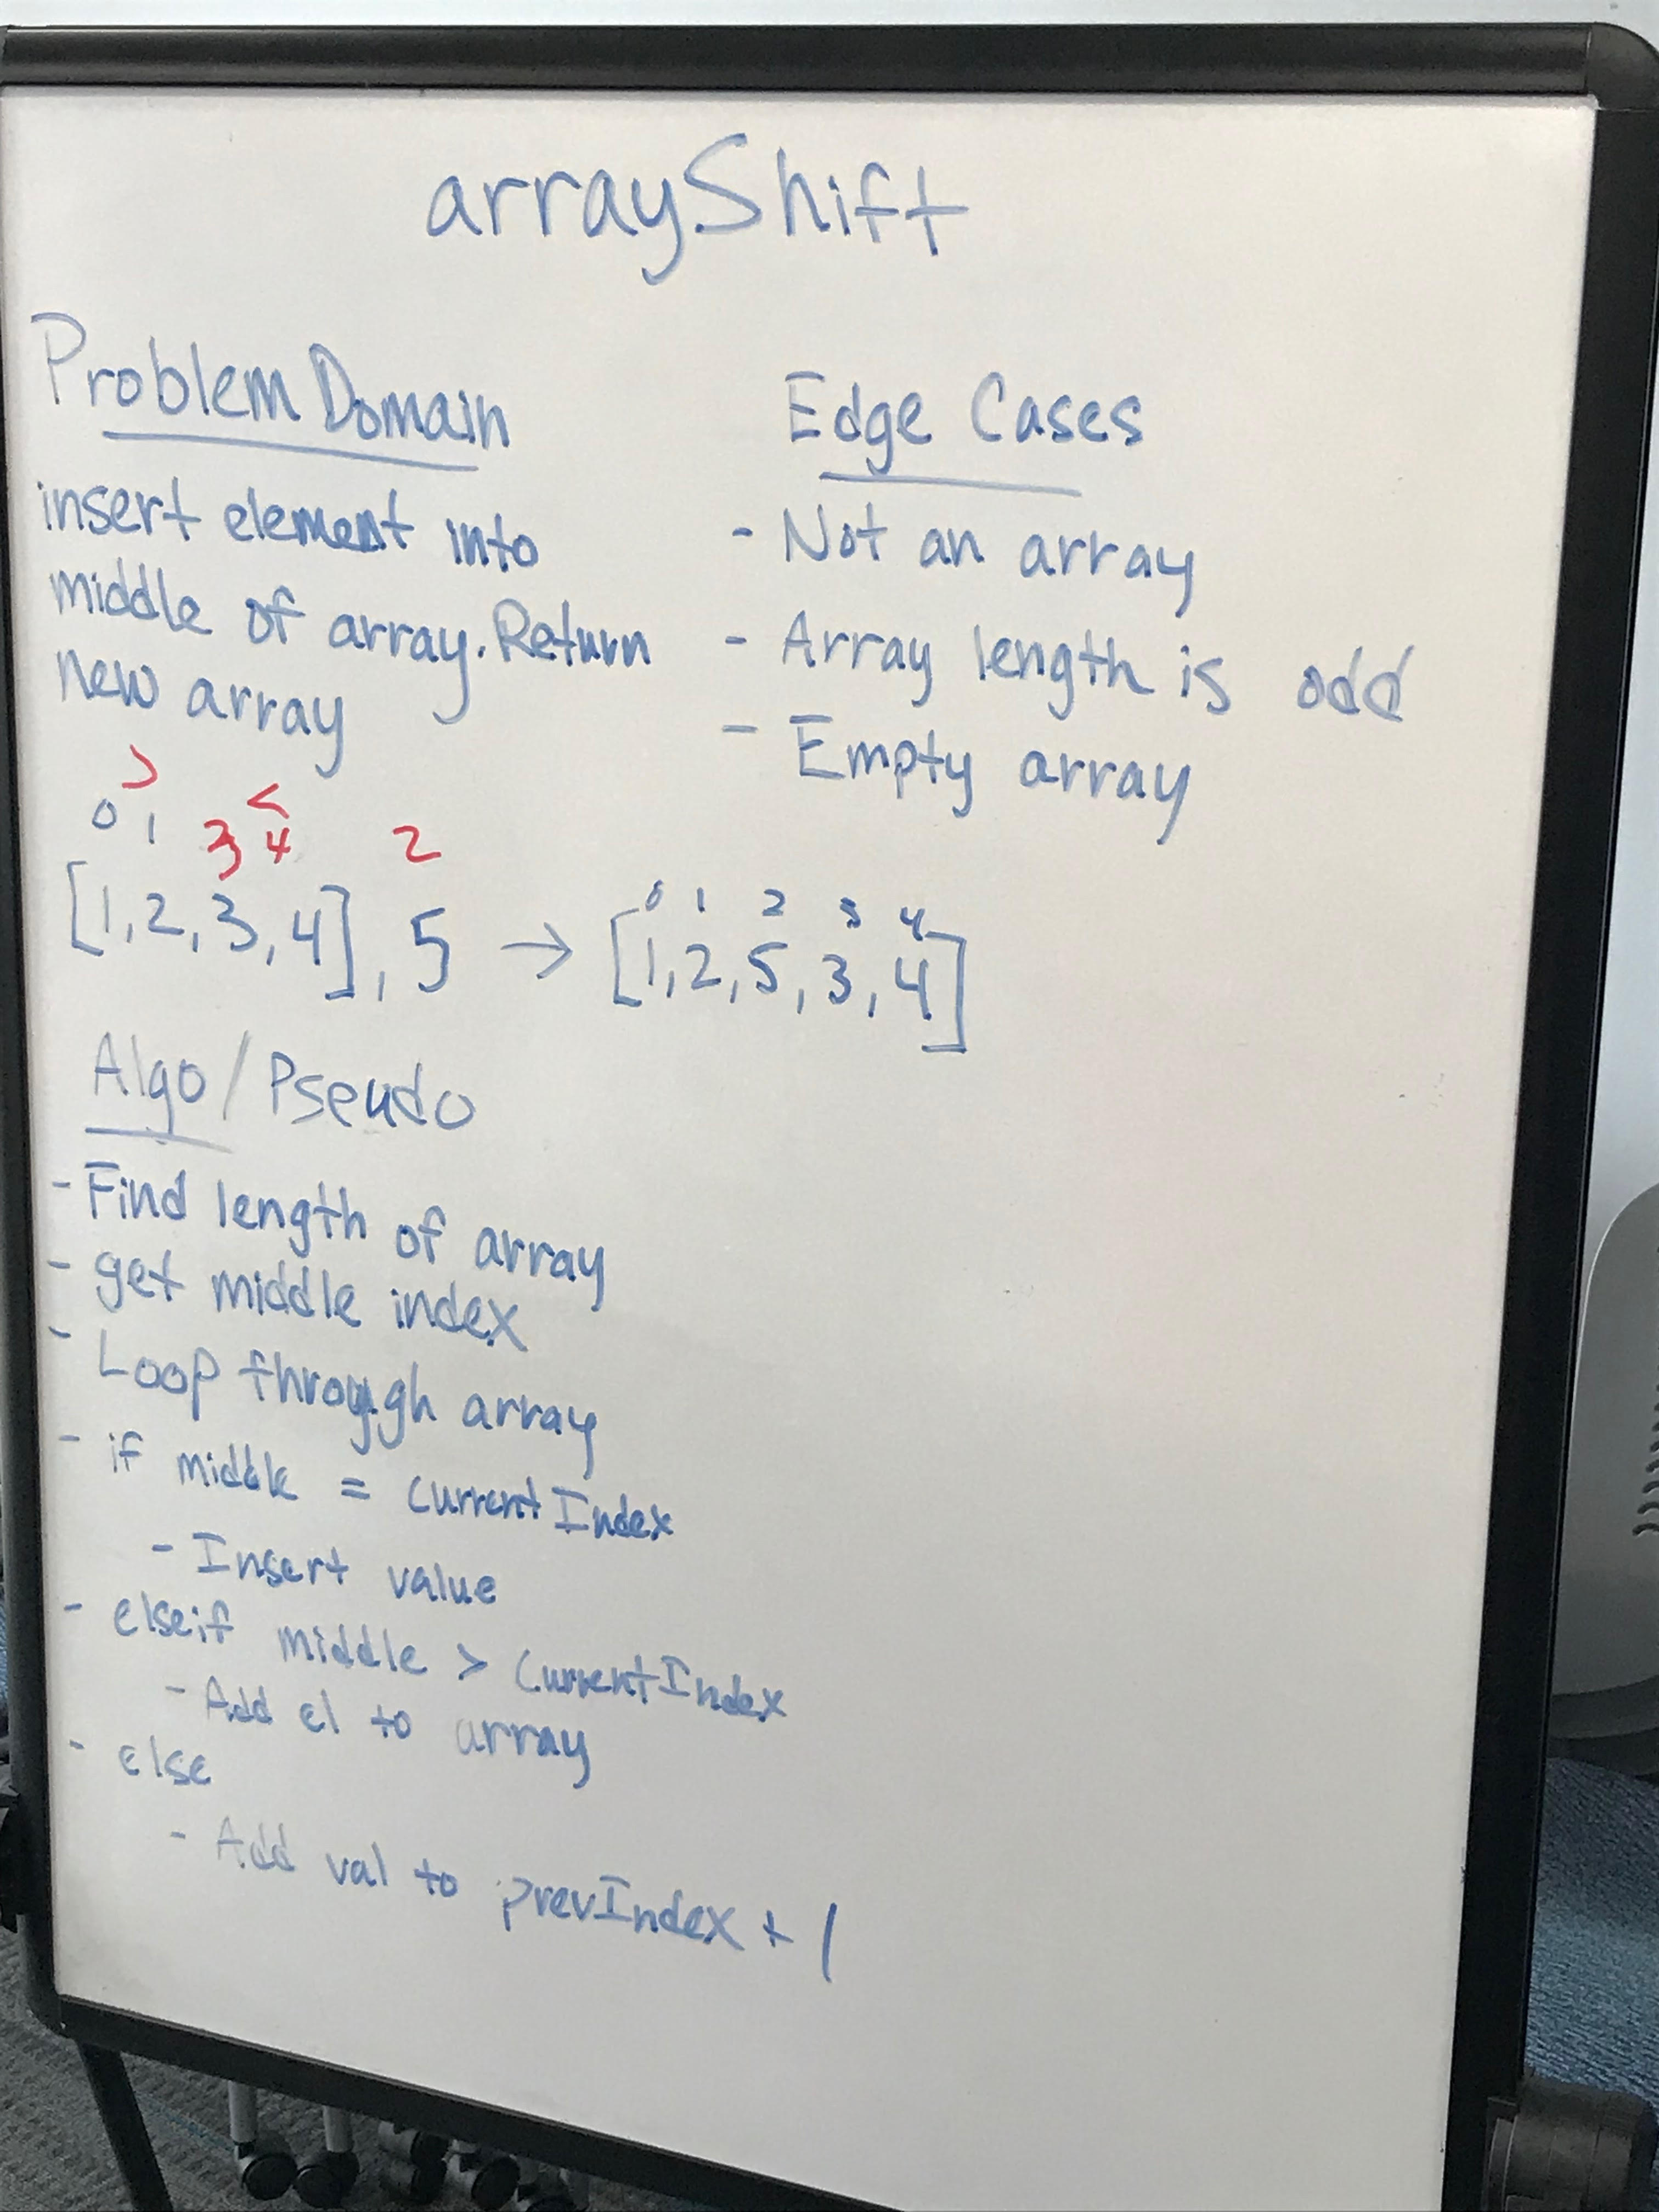 arrayShift
Problem Domain
insert element into
middle of array. Return
new array
Edge Cases
- Not an array
- Array length is odd
- Empty array
> <
0 1 3 4 2
[1,2,3,4], 5 → [1,2,5,3,4]
0 1 2 3 4
Algo/Pseudo
- Find length of array
- get middle index
- Loop through array
- if middle = currentIndex
- Insert value
- elseif middle > currentIndex
- Add el to array
- else
- Add val to prevIndex + 1